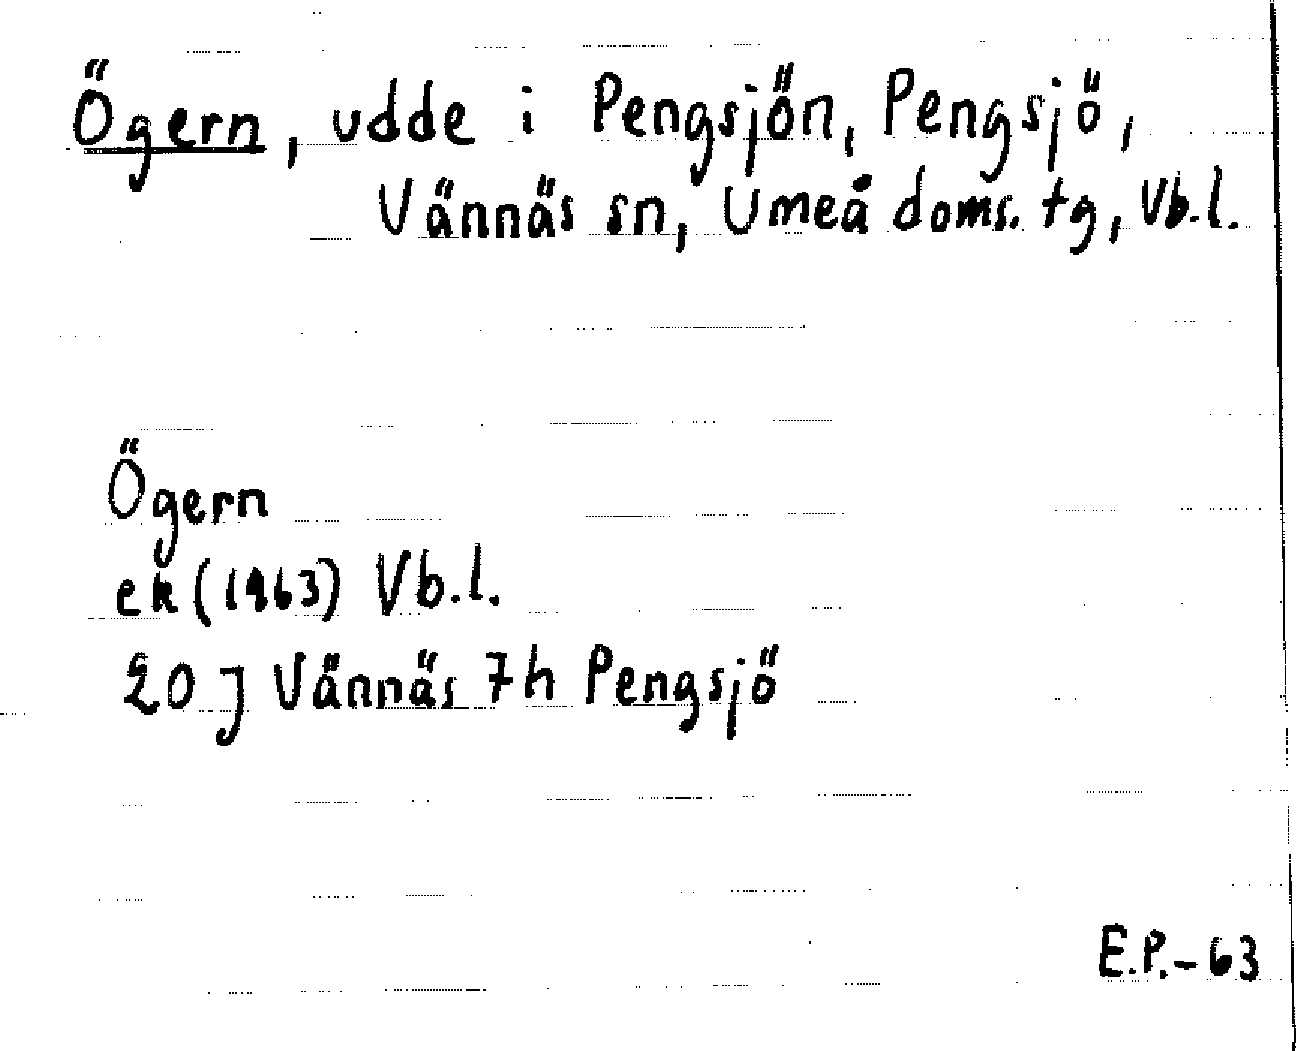 Ögern, udde i Pengsjön, Pengsjö,
Vännäs sn, Umeå doms. tg, Vb.l.
Ögern
ek (1963) Vb.l.
20 J Vännäs 7h Pengsjö
E.P.-63